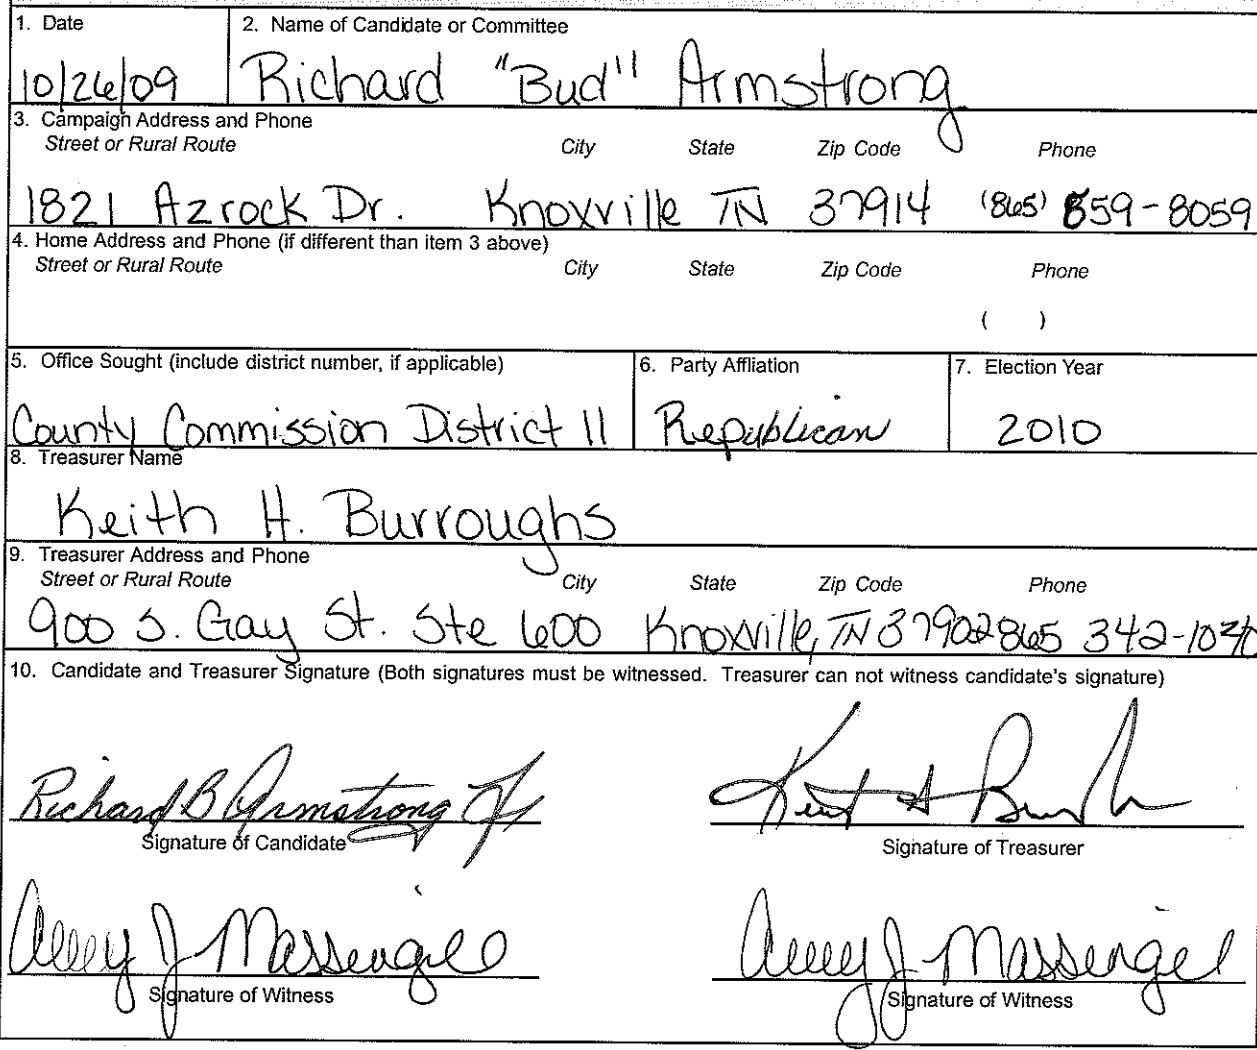 1. Date 2. Name of Candidate or Committee
10/26/09 Richard "Bud" Armstrong
3. Campaign Address and Phone
Street or Rural Route City State Zip Code Phone
1821 Azrock Dr. Knoxville TN 37914 (865) 659-8059
4. Home Address and Phone (if different than item 3 above)
Street or Rural Route City State Zip Code Phone
( )
5. Office Sought (include district number, if applicable) 6. Party Affliation 7. Election Year
County Commission District 11 Republican 2010
8. Treasurer Name
Keith H. Burroughs
9. Treasurer Address and Phone
Street or Rural Route City State Zip Code Phone
900 S. Gay St. Ste 600 Knoxville, TN 37902 865 342-1040
10. Candidate and Treasurer Signature (Both signatures must be witnessed. Treasurer can not witness candidate's signature)
Richard B Armstrong Jr
Signature of Candidate Signature of Treasurer
Amy J Massengill Amy J Massengill
Signature of Witness Signature of Witness